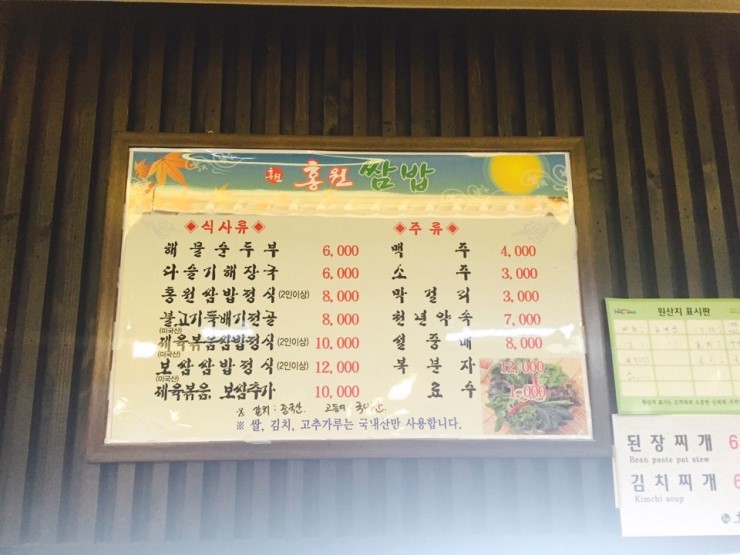 홍원 홍원 쌈밥
◆식사류◆
해물순두부 6,000
다슬기해장국 6,000
홍원쌈밥정식(2인이상) 8,000
불고기뚝배기전골 8,000
(미국산)
제육볶음쌈밥정식(2인이상) 10,000
(미국산)
보쌈쌈밥정식(2인이상) 12,000
(미국산)
제육볶음 보쌈추가 10,000
◆주류◆
맥주 4,000
소주 3,000
막걸리 3,000
천년약속 7,000
설중매 8,000
복분자 12,000
음료수 1,000
※ 쌀, 김치, 고추가루는 국내산만 사용합니다.
원산지 표시판
된장찌개 6
Bean paste pot stew
김치찌개 6
Kimchi soup